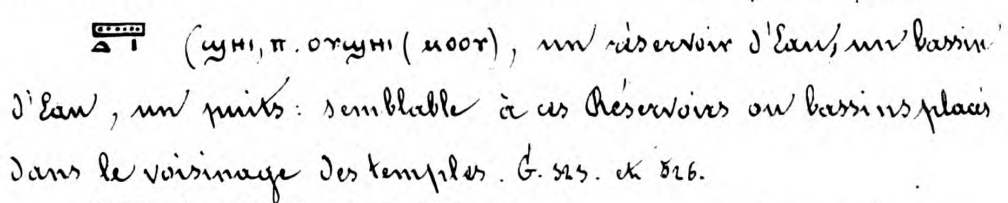 (ϣⲏⲓ, ⲡ. ⲟⲩϣⲏⲓ (ⲙⲟⲟⲩ), un réservoir d'Eau, un bassin
d'Eau, un puits: semblable à ces Réservoirs ou bassins placés
dans le voisinage des temples. G. 323. et 526.